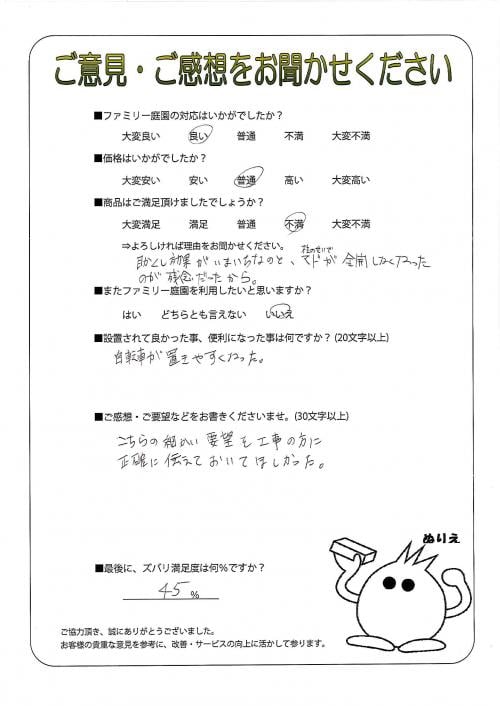 ご意見・ご感想をお聞かせください
■ファミリー庭園の対応はいかがでしたか？
大変良い 良い 普通 不満 大変不満
■価格はいかがでしたか？
大変安い 安い 普通 高い 大変高い
■商品はご満足頂けましたでしょうか？
大変満足 満足 普通 不満 大変不満
⇒よろしければ理由をお聞かせください。
柱のせいで
目かくし効果がいまいちなのと、マドが全開しなくなった
のが残念だったから。
■またファミリー庭園を利用したいと思いますか？
はい どちらとも言えない いいえ
■設置されて良かった事、便利になった事は何ですか？(20文字以上)
自転車が置きやすくなった。
■ご感想・ご要望などをお書きくださいませ。(30文字以上)
こちらの細かい要望を工事の方に
正確に伝えておいてほしかった。
ぬりえ
■最後に、ズバリ満足度は何％ですか？
45 %
ご協力頂き、誠にありがとうございました。
お客様の貴重な意見を参考に、改善・サービスの向上に活かして参ります。